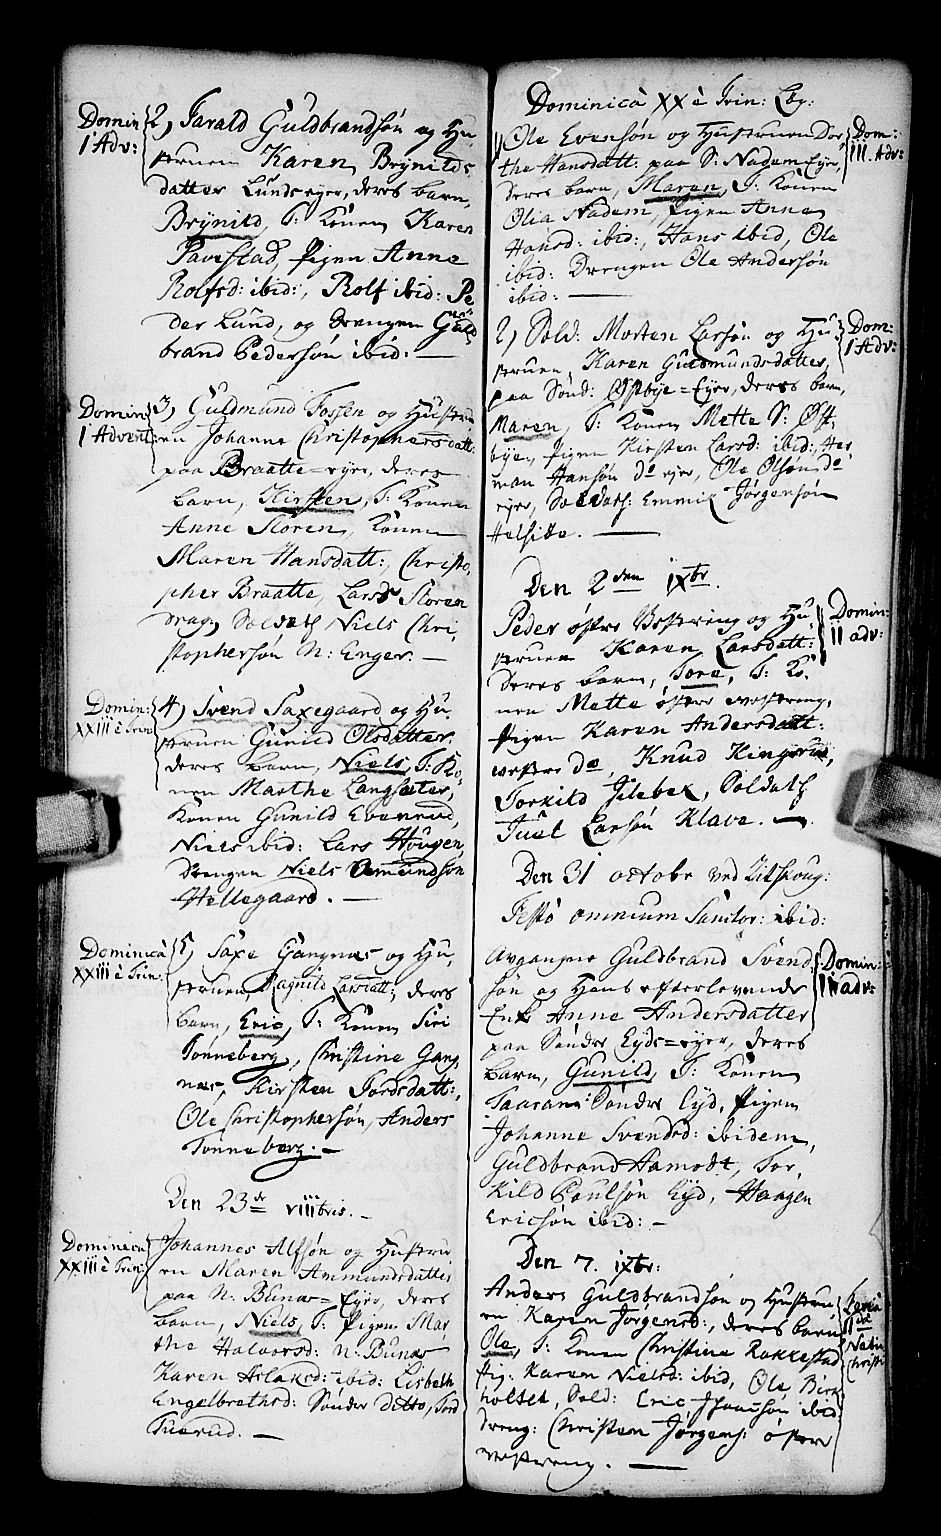 Domin
1 Adv:
2, Tarald Guldbrandsøn og Hu-
struen Karen Brynilds
datter Lunds eyer, deres barn,
Brynild, T: Konen Karen
Pavestad, Pigen Anne
Rolfsd: ibid:, Rolf ibid: Pe
der Lund, og drengen Guld
brand Pedersøn ibid: —
Domin
1 Advent
3, Guldmund Fossen og Hustru
en Johanne Christophersdatt:
paa Braatte-eyer, deres
barn, Kirsten, T: Konen
Anne Storen, Konen
Maren Hansdatt:, Christo,
pher Braatte, Lars Storen
drag, Soldath Niels Chri,
stophersøn N: Enger. —
Domin:
XXIII è Trin
4, Svend Saxegaard og Hu,
struen Gunild Olsdatter,
deres barn, Niels, T: Ko,
nen Marthe Langsæter,
Konen Gunild Evenrud,
Niels ibid: Lars Hougen,
drengen Niels Omundsøn
Hellegaard. —
Dominicâ
XXIII è Trin.
5, Saxe Gangnæs og Hu,
struen, Ragnild Larsdatt; deres
barn, Eric, T: Konen Siri
Tønneberg, Christine Gang
næs, Kirsten Tordsdatt:,
Ole Christophersøn, Anders
Tønneberg. —
Den 23de VIIIbris. —
XXIII è Trin:
Johannes Alfsøn og Hustru
en Maren Ammundsdatter
paa N: Bunæs-Eyer, deres
barn, Niels, T: Pigen Mar
the Halvorsd: N: Bunæs
Karen Aslaksd: ibid: Lisbeth
Engelbrethsd: Søndre ditto, Tord
Tuerud. —
Dominicâ XX è Trin: Lbg:
Dom:
III. Adv:
Ole Evensøn og Hustruen Dor
the Hansdatt: paa S: Nadem Eyer,
deres barn, Maren, T: Konen
Olia Nadem, Pigen Anne
Hansd: ibid:, Hans ibid, Ole
ibid: Drengen Ole Andersøn
ibid: —
Dom:
1 Adv:
2, Sold: Morten Larsøn og Hu,
struen, Karen Guldmundsdatter,
paa Sønd: Østbye-Eyer, deres barn,
Maren, T: Konen Mette S: Øst,
bye, Pigen Kirsten Larsd: ibid:, Her
man Hansøn do eyer, Ole Olsøn do
eyer, Soldath: Emmik Jørgensøn
Den 2den IXbr.
Domin:
II adv:
Peder østre Vestreng og Hu,
struen Karen Larsdatt:
deres barn, Tore, T: Ko,
nen Mette østre Vestreng,
Pigen Karen Andersdatt:
vestre do, Knud Kingsrud,
Torkild Jelebek, Soldath
Juel Larsøn Klave. —
Den 31 octobr ved Uitskoug:
Festo omnium Sanctor: ibid:
Domin:
II adv:
Avgangne Guldbrand Svend
søn og Hans efterlevende
Enke Anne Andersdatter
paa Søndre Eyds-eyer, deres
barn, Gunild, T: Konen
Taaran: Søndre Eyd, Pigen
Johanne Svendsd: ibidem,
Guldbrand Aamodt, Tor,
kild Poulsøn Eyd, Haagen
Ericsøn ibid: —
Den 7. IXbr:
Anders Guldbrandsøn og Hustru
en Karen Jørgensd:, deres barn
Ole, T: Konen Christine Rakkestad
Pig: Karen Nielsd: ibid, Ole Birk
holtet, Sold: Eric ibid:
dreng: Christen Jørgens: østre
Vestreng. —